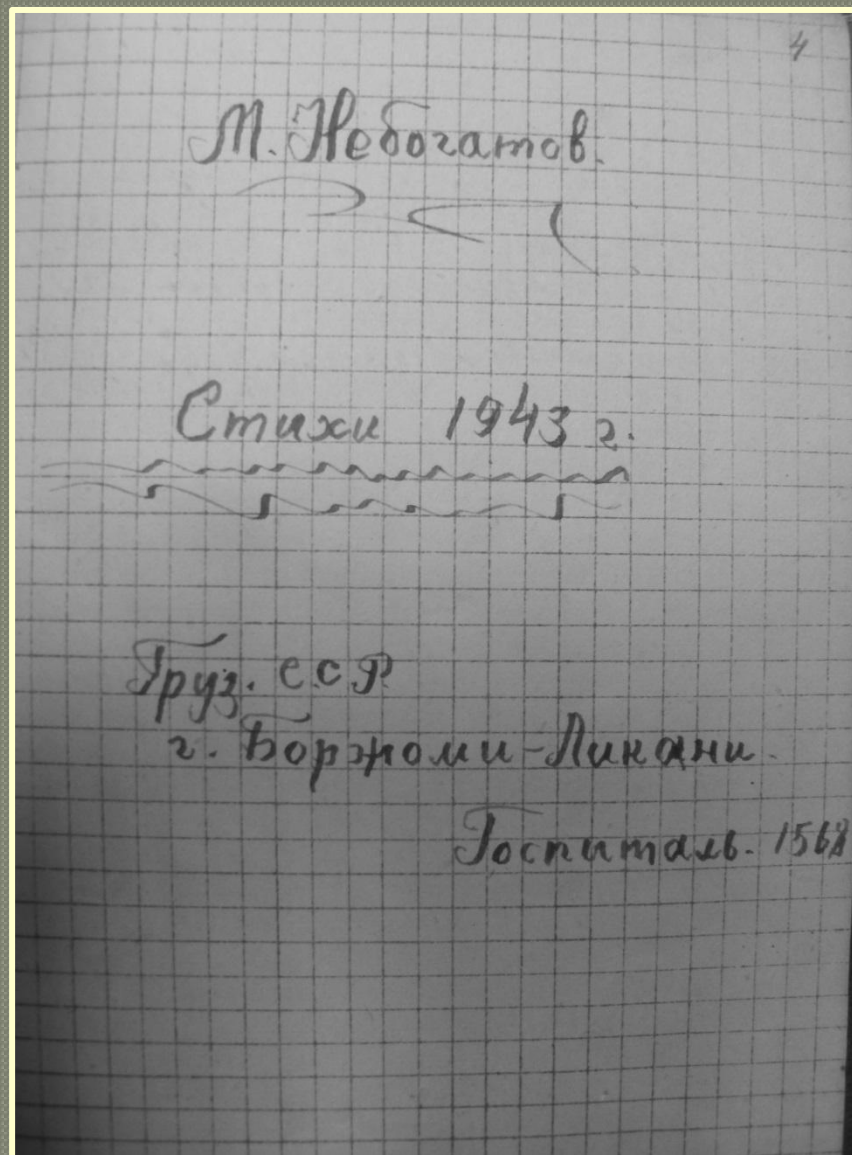 4
М. Небогатов.
Стихи 1943 г.
Груз. ССР.
г. Боржоми-Ликани.
Госпиталь.